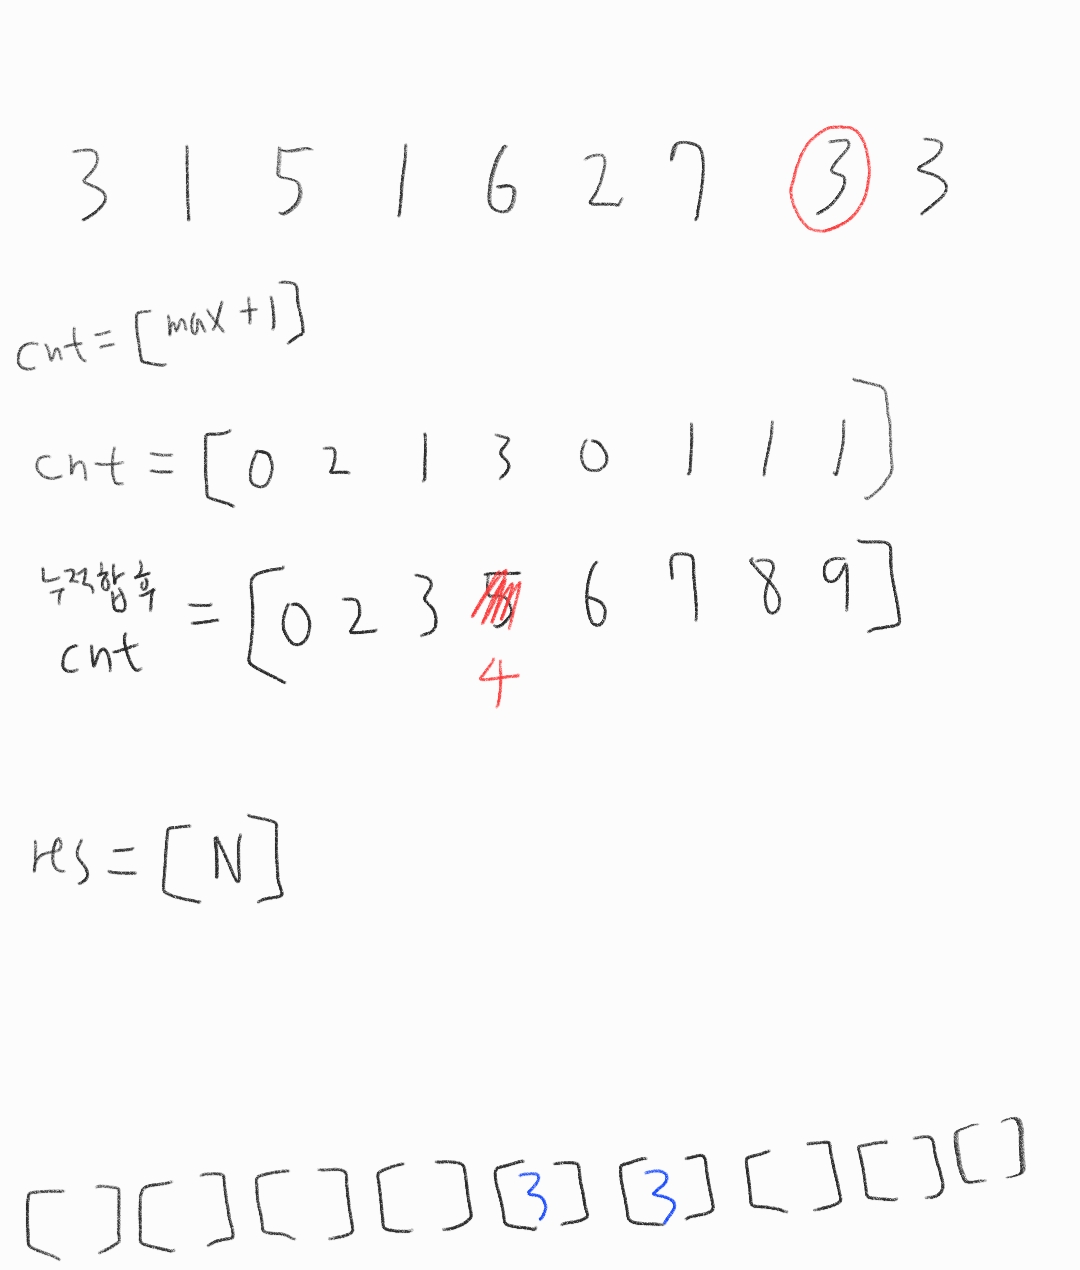 3 1 5 1 6 2 7 3 3
cnt = [max + 1]
cnt = [0 2 1 3 0 1 1 1]
누적합 후
cnt = [0 2 3 6 7 8 9]
4
res = [N]
[ ] [ ] [ ] [ ] [3] [3] [ ] [ ] [ ]